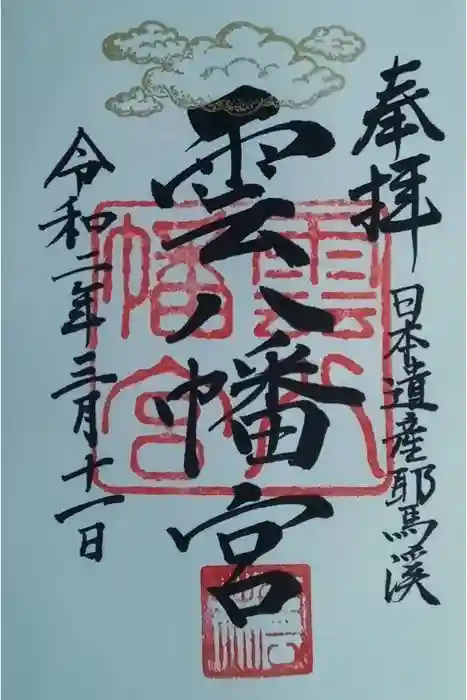 奉拝
日本遺産耶馬溪
雲八幡宮
令和二年三月十一日
雲八幡宮